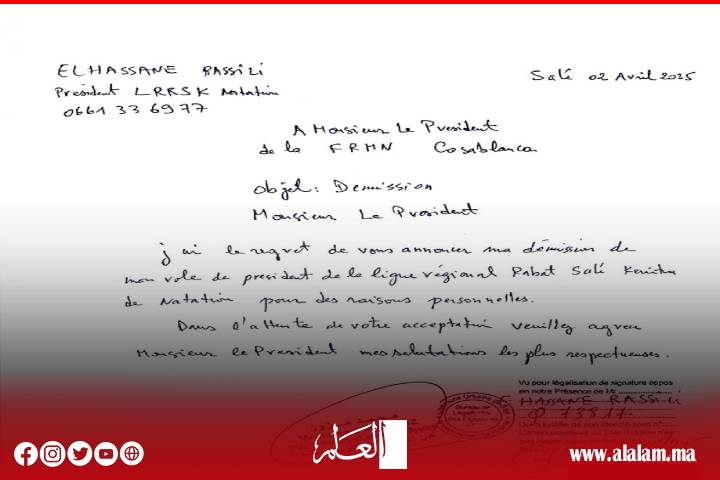 ELHASSANE RASSILI
Président LRRSK Natation
0661 33 69 77
Salé 02 Avril 2025
A Monsieur Le President
de la FRMN Casablanca
Objet: Demission
Monsieur Le President
j'ai le regret de vous annoncer ma démission de
mon role de president de la ligue régional Rabat Salé Kenitra
de Natation pour des raisons personnelles.
Dans l'attente de votre acceptation veuillez agreer
Monsieur le President mes salutations les plus respectueuses.
Vu pour légalisation de signature appos
en notre Présence de M
HASSANE RASSILI
العلم
www.alalam.ma